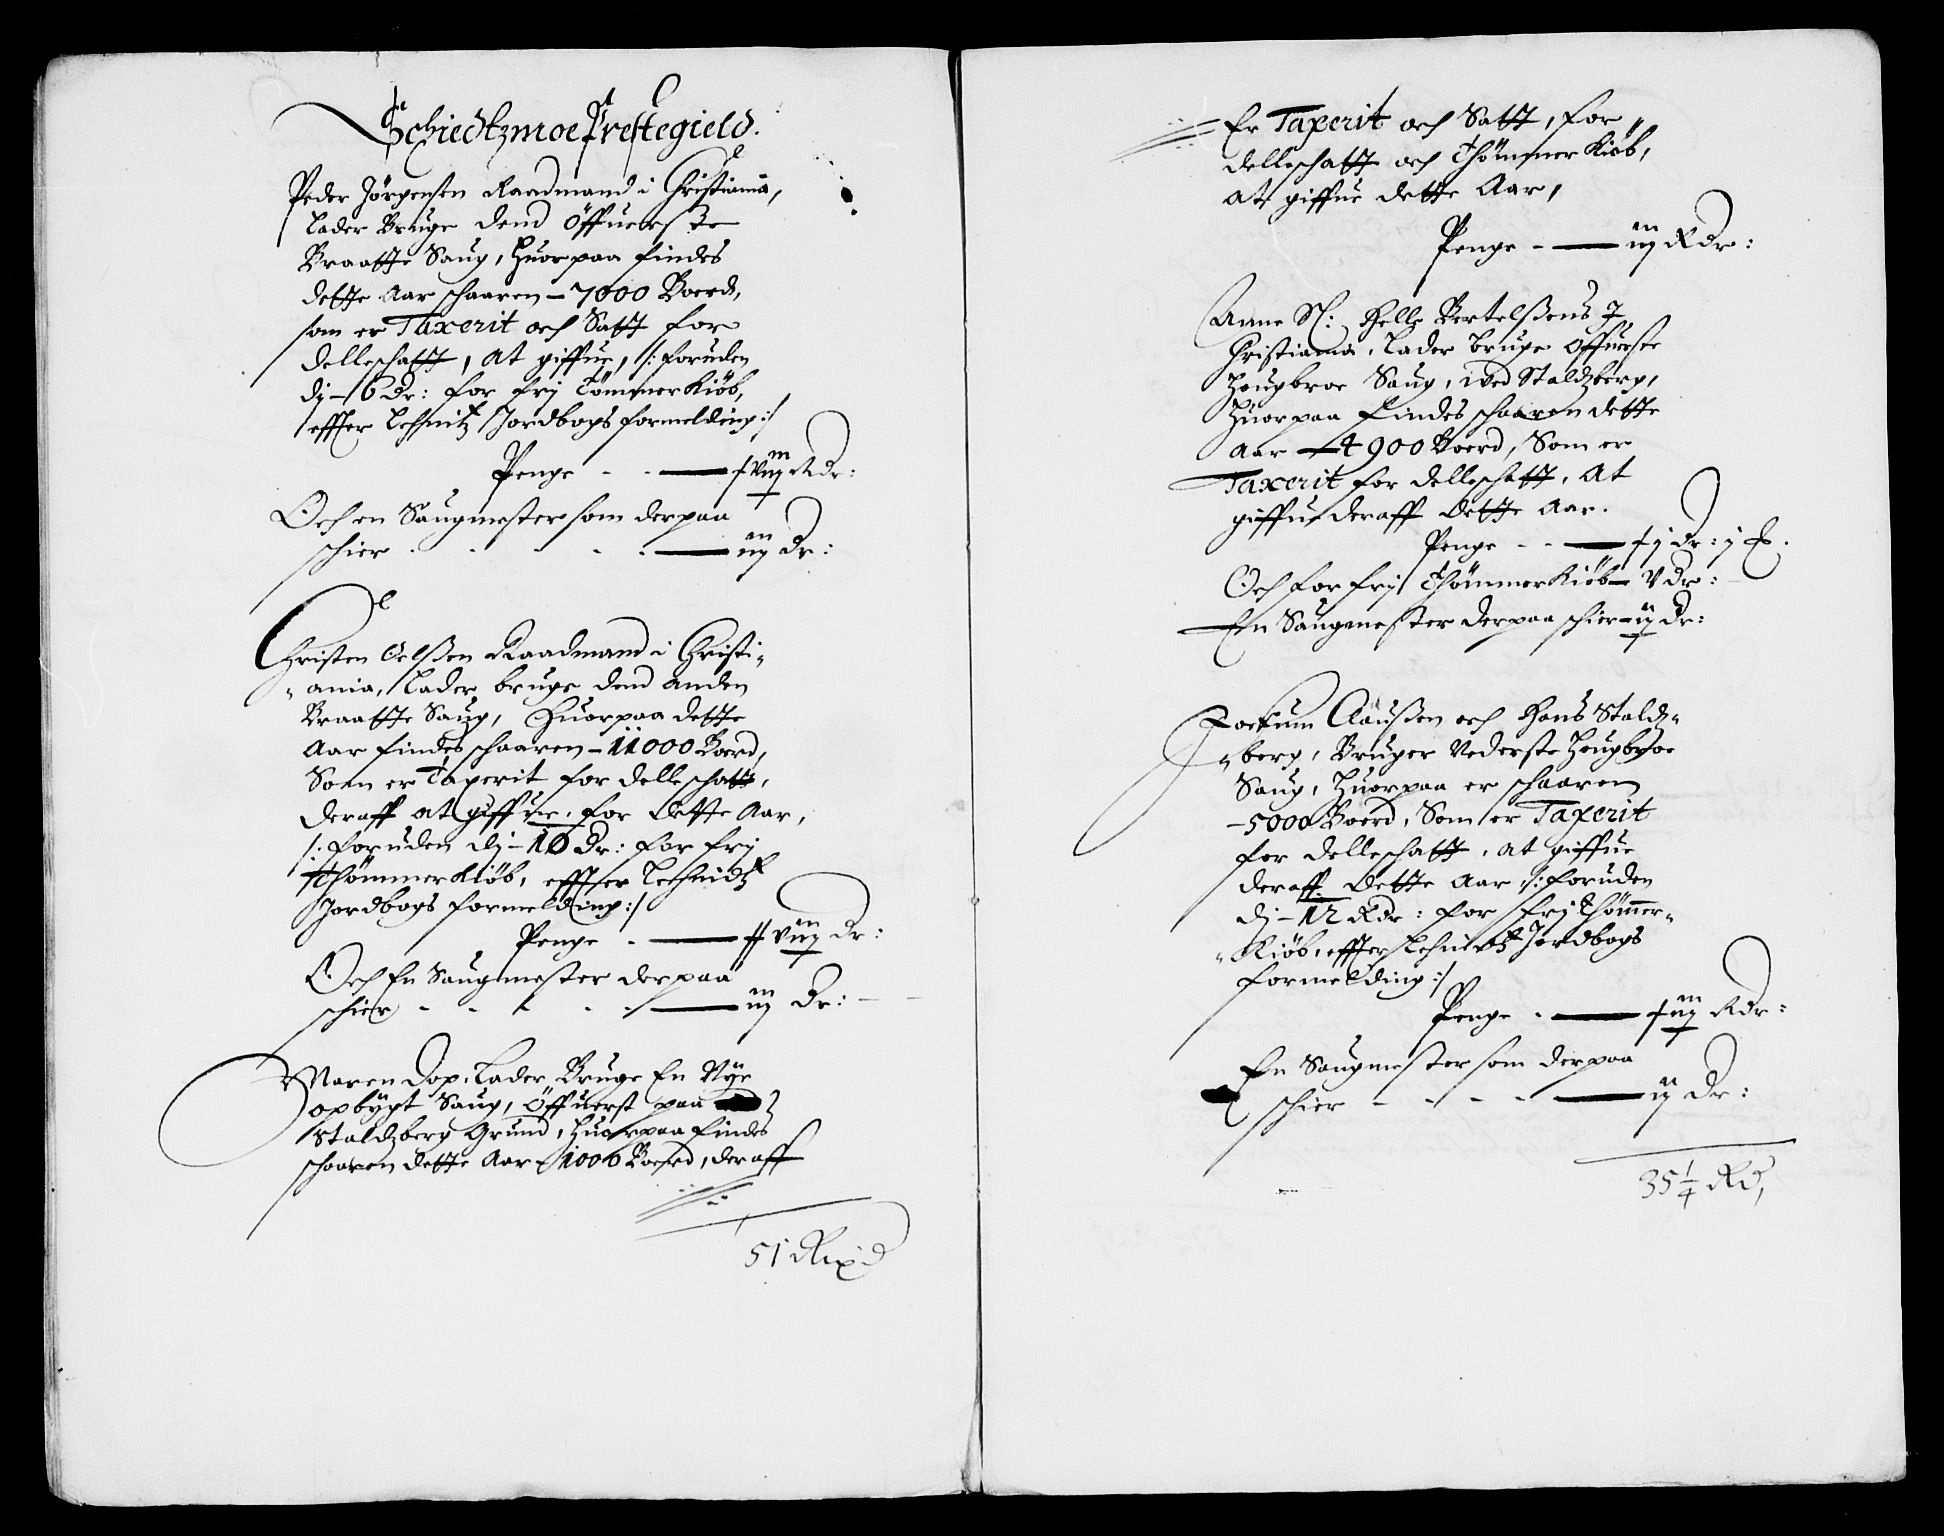 Schiedtzmoe Prestegield.
Peder Jörgensen Raadmand i Christiania,
Lader Bruge dend Öffuerste
Braatte Saug, Huorpaa findes
dette Aar schaaren – 7000 Boerd,
som er Taxerit och Satt for
delleschatt, at giffue, /: foruden
di – 6 Dr: for frij Tömmer Kiöb,
effter Lehnitz Jordbogs formelding :/
Penge - - — Rdr:
Och en Saugmester som derpaa
schier - - - - — iij Dr:
Christen Oelßen Raadmand i Christi-
ania, Lader bruge dend anden
Braatte Saug, Huorpaa dette
Aar findes schaaren – 11000 Boerd,
Som er Taxerit for delleschatt,
deraff at giffue, for dette Aar,
/: foruden di – 10 Dr: for frij
Thömmer Kiöb, effter Lechnidtz
Jordbogs formelding :/
Penge - — Dr:
Och En Saugmester derpaa
schier - - - - — iij Dr:
Maren Dop, Lader Bruge En Nye
opbygt Saug, Öffuerst paa
Staldzberg Grund, Huorpaa findes
schaaren dette Aar – 1000 Boerd, deraff
51 Rixd
Er Taxerit och Satt, for
delleschatt och Thömmer Kiöb,
at giffue dette Aar,
Penge - — iij Rdr:
Anne Sl: Helle Bertelßens J
Christiania, Lader bruge Öffuerste
Hougbroe Saug, wed Staldzberg,
Huorpaa findes schaaren dette
Aar – 4900 Boerd, Som er
Taxerit for delleschatt, at
giffue deraff dette Aar.
Penge - - — Dr: j
Och for frij Thömmer Kiöb – V Dr:
En Saugmester derpaa schier – ij Dr:
Joekum Claußen och Hans Staldz-
berg, Bruger Nederste Hougbroe
Saug, Huorpaa er schaaren
– 5000 Boerd, Som er Taxerit
for delleschatt, at giffue
deraff dette Aar /: foruden
di – 12 Rdr: for frij Thömmer-
Kiöb, effter Lehnidtz Jordbogs
formelding :/
Penge - — Rdr:
En Saugmester som derpaa
schier - - - - — ij Dr:
35 1/4 Rd,